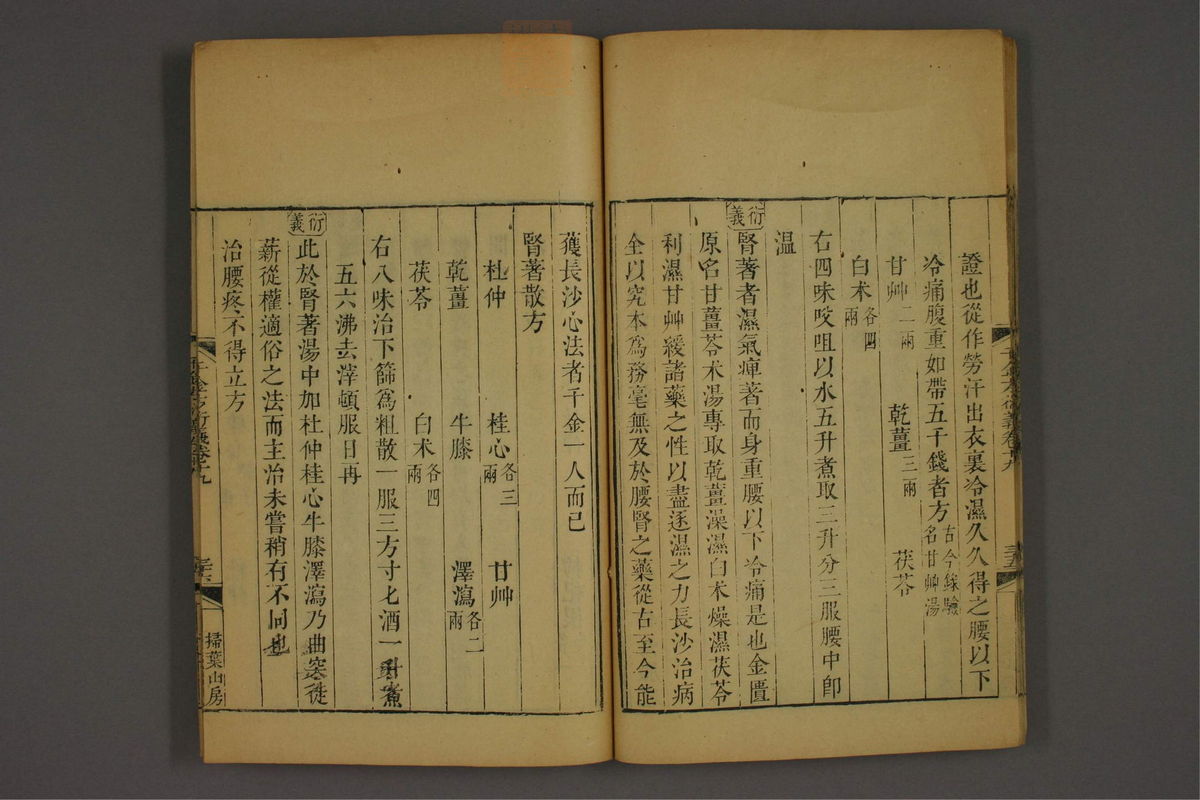 證也從作勞汗出衣裏冷濕久久得之腰以下
冷痛腹重如帶五千錢者方古今錄驗名甘艸湯
甘艸二兩 乾薑三兩 茯苓
白朮各四兩
右四味㕮咀以水五升煮取三升分三服腰中卽
温
衍義
腎著者濕氣痺著而身重腰以下冷痛是也金匱
原名甘薑苓朮湯專取乾薑澡濕白朮燥濕茯苓
利濕甘艸緩諸藥之性以盡逐濕之力長沙治病
全以究本爲務毫無及於腰腎之藥從古至今能
獲長沙心法者千金一人而已
腎著散方
杜仲 桂心各三兩 甘艸
乾薑 牛膝 澤瀉各二兩
茯苓 白朮各四兩
右八味治下篩爲粗散一服三方寸匕酒一升煮
五六沸去滓頓服日再
衍義
此於腎著湯中加杜仲桂心牛膝澤瀉乃曲突徙
薪從權適俗之法而主治未嘗稍有不同也
治腰疼不得立方
千金方衍義卷十九
掃葉山房